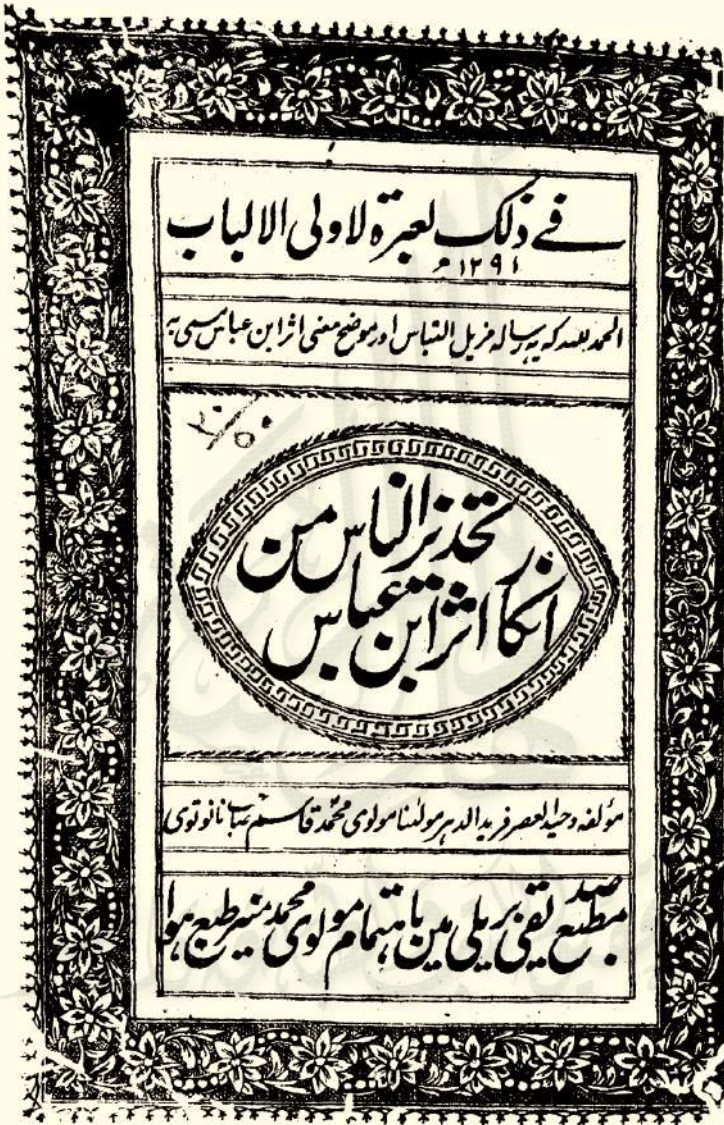 فے ذلك لعبرة لاولی الالباب
۱۲۹۱ ھ
الحمد للہ کہ یہ رسالہ مزیل التباس اور موضح معنی اثر ابن عباس مسمی بہ
تحذیر الناس من
انکار اثر ابن عباس
مؤلفہ وحید العصر فرید الدہر مولٰنا مولوی محمد قاسم صاحب نانوتوی
مطبع صدیقی بریلی مین باہتمام مولوی محمد منیر طبع ہوا